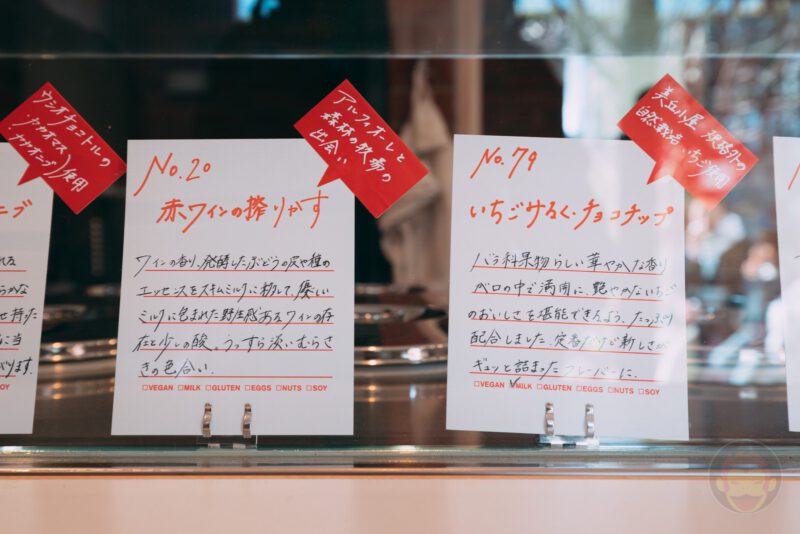 ウシオチョコトルの
カカオマス
カカオニブ)使用
ニブ
れた
らかな
せ持た
に当
がります.
SOY
アルフォーレと
森林の牧場の
出会い
No.20
赤ワインの搾りかす
ワインの香り、発酵したぶどうの皮や種の
エッセンスをスキムミルクに移して、優しい
ミルクに包まれた野性感あるワインの存
在と少しの酸。うっすら淡いむらさ
きの色合い.
□VEGAN □MILK □GLUTEN □EGGS □NUTS □SOY
美丘小屋 規格外の
自然栽培いちご使用
No.79
いちごみるく・チョコチップ
バラ科果物らしい華やかな香り
ベロの中で満開に、艶やかないちご
のおいしさを堪能できんよう、たっぷり
配合しました.定番だけど新しさが
ギュッと詰まったフレーバーに.
□VEGAN ☑MILK □GLUTEN □EGGS □NUTS □SOY